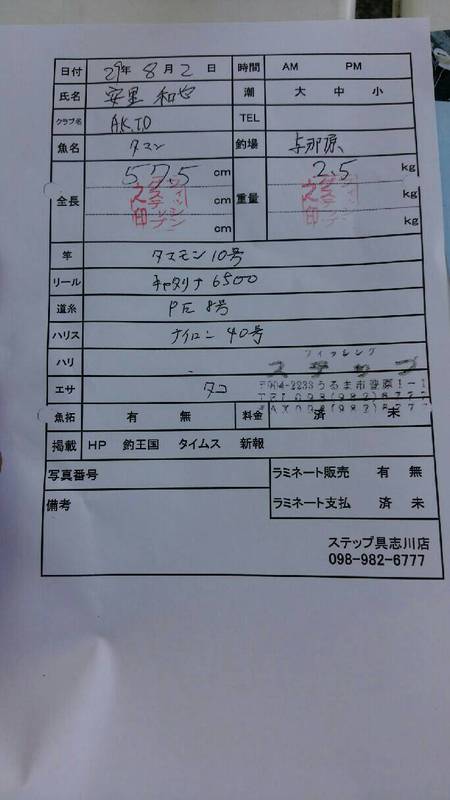 日付 29年 8月 2日 時間 AM PM
氏名 安里 和也 潮 大 中 小
クラブ名 AK.TO TEL
魚名 タマン 釣場 与那原
全長 57.5 cm 重量 2.5 kg
cm kg
cm kg
竿 タマモン 10号
リール キャタリナ 6500
道糸 PE 8号
ハリス ナイロン 40号
ハリ
フィッシング
ステップ
エサ タコ
魚拓 有 無 料金 済 未
掲載 HP 釣王国 タイムス 新報
写真番号 ラミネート販売 有 無
備考 ラミネート支払 済 未
ステップ具志川店
098-982-6777